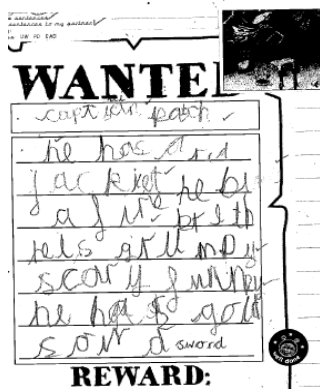 sentences to my partner
WANTE
captain patch
he has a rid
jacket he bi
a fire breth
hels grumpy
scary funney
he has gold
sowd a sword
REWARD:
well done